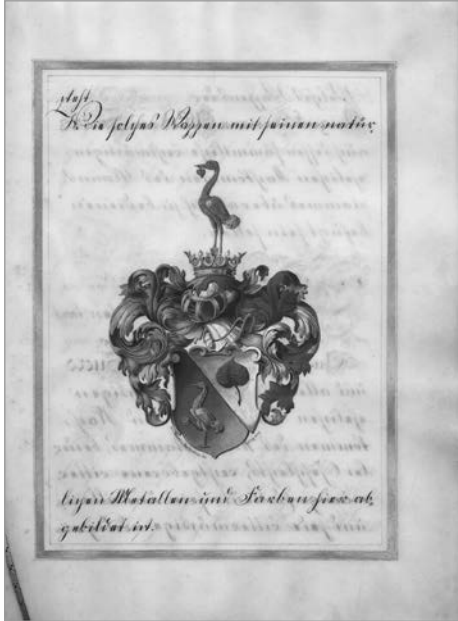 steht.
Wie solches Wappen mit seinen natür
lichen Metallen und Farben hier ab
gebildet ist.